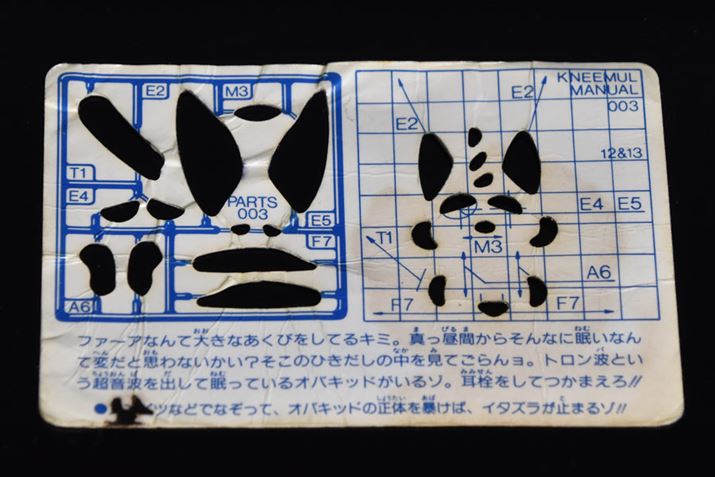 E2
M3
T1
E4
PARTS
003
E5
F7
A6
KNEEMUL
MANUAL
003
E2
E2
12&13
E4 E5
T1
M3
A6
F7
F7
ファーアなんて大きなあくびをしてるキミ。真っ昼間からそんなに眠いなん
て変だと思わないかい?そこのひきだしの中を見てごらんョ。トロン波とい
う超音波を出して眠っているオバキッドがいるゾ。耳栓をしてつかまえろ!!
ツなどでなぞって、オバキッドの正体を暴けば、イタズラが止まるゾ!!